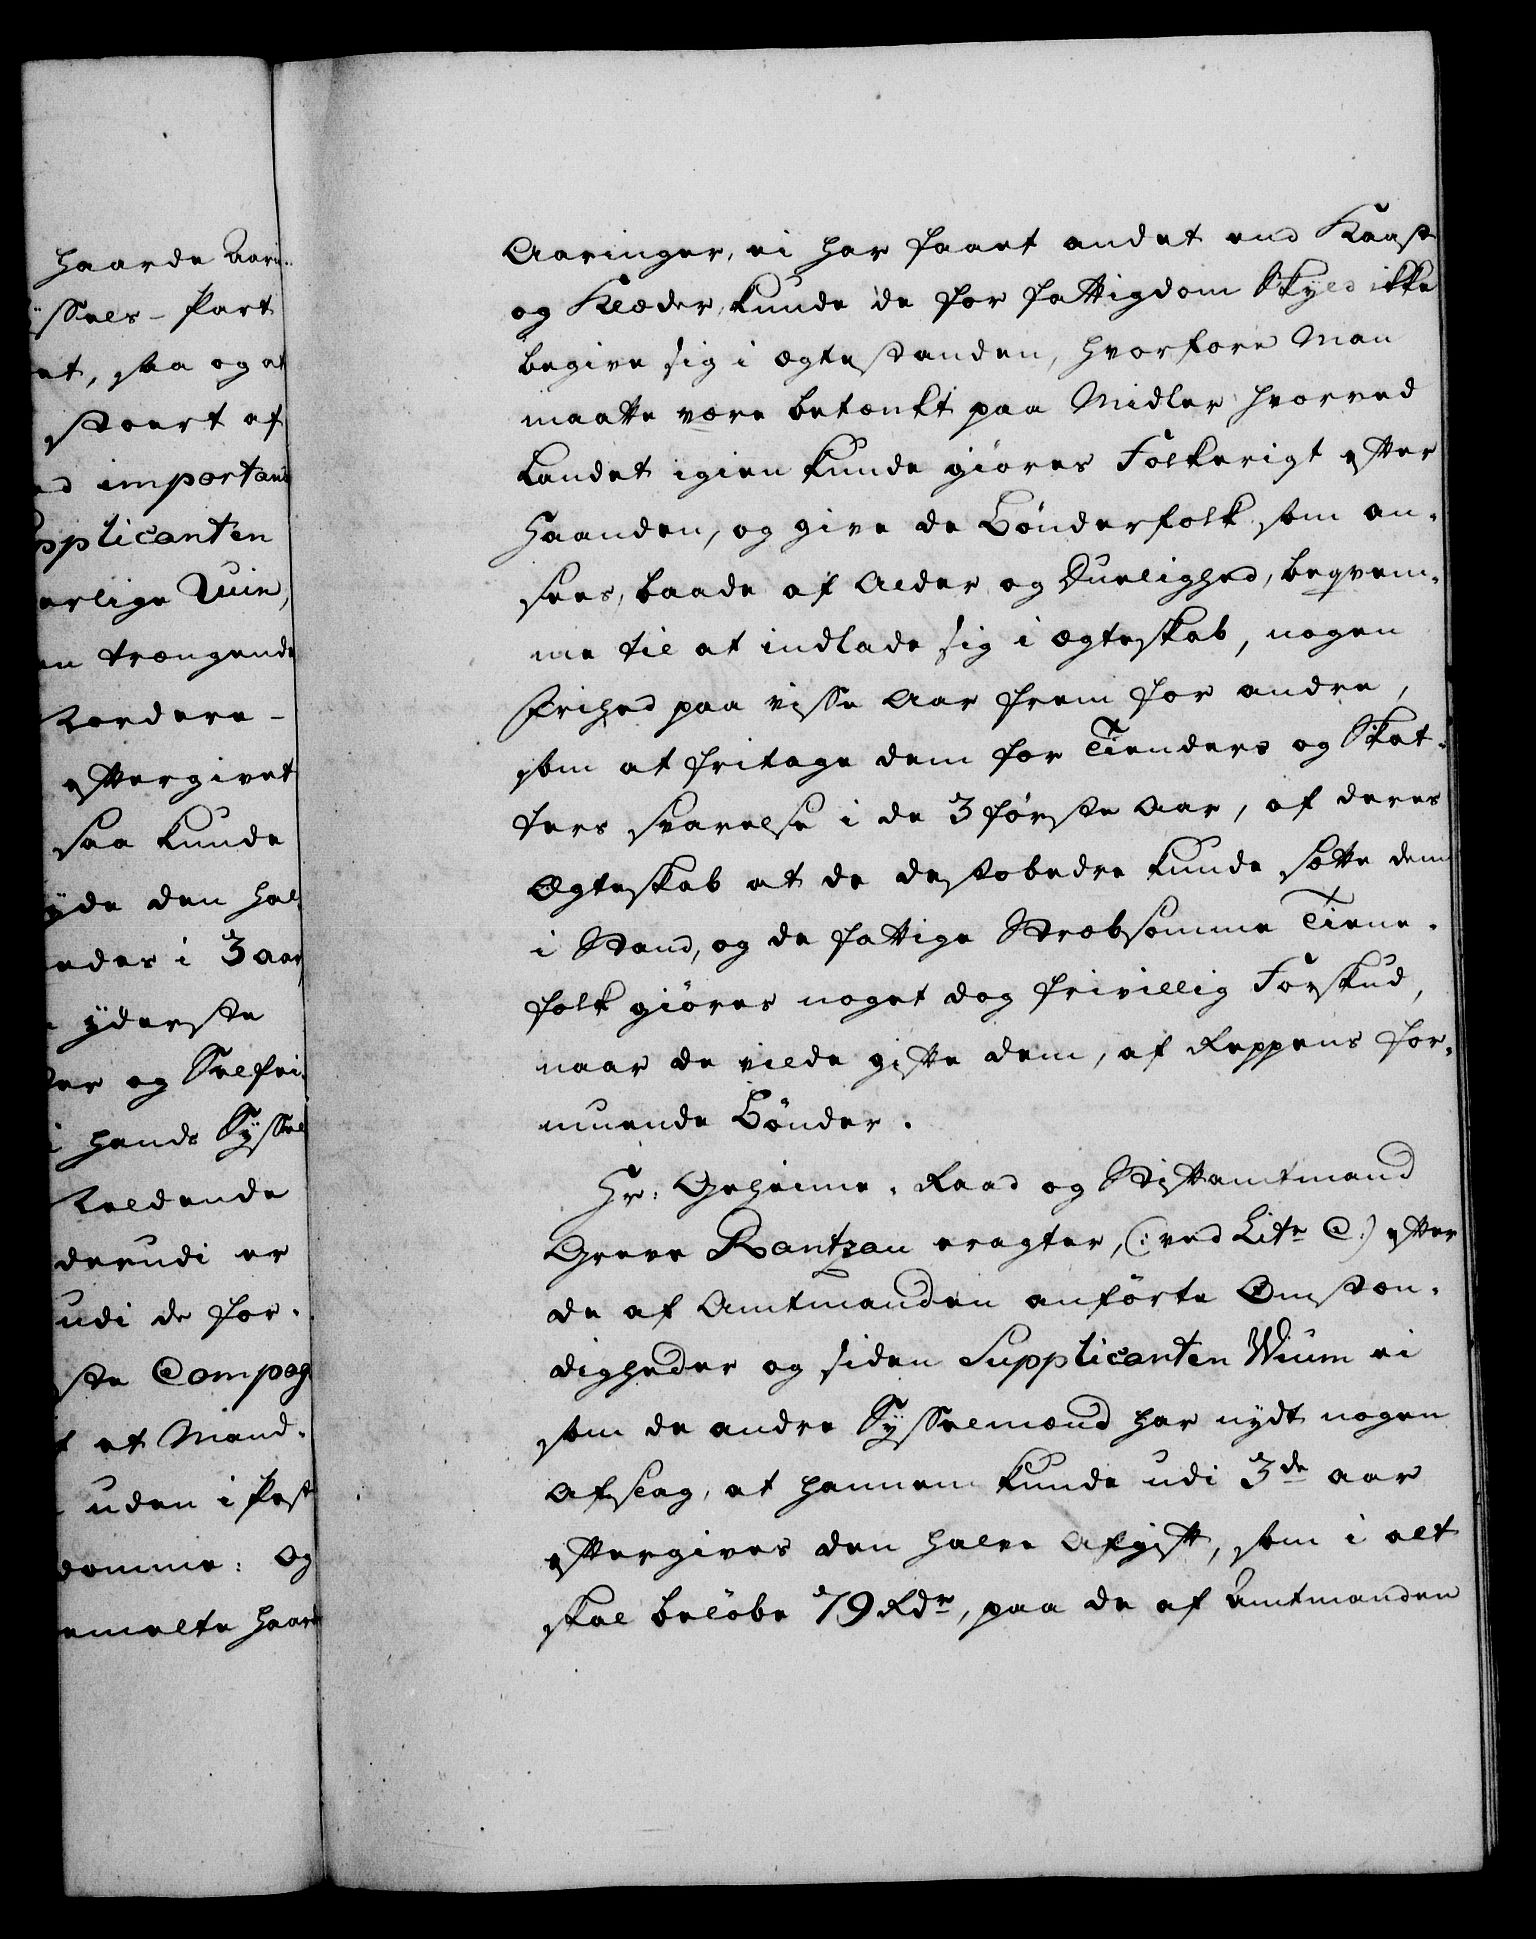 haarde Aarin
ÿssels-Part
et, saa og at
stoert af
ed importan
pplicanten
erlige Ruin,
en trængende
Vordere-
eftergivet
saa kunde
ÿde den hal
edes i 3 aar
yderste
er og Selfri
i hends Syssel
Veldende
derudi er
udi de for-
ste Compag
et Mand-
uden i Pest
domme: Og
emelte haard
Aaringer, ei har faaet andet end Kaast
og Klæder, kunde de for fattigdom Skyld ikke
begive sig i ægtestanden, hvorfore Man
maatte være betænkt paa Midler hvorved
Landet igien kunde giöres Folkerigt efter
Haanden, og give de Bönderfolk, som an-
sees, baade af Alder og Duelighed, beqvem-
me til at indlade sig i ægteskab, nogen
Frihed paa visse Aar frem for andre,
som at fritage dem for Tienders og Skat-
ters svarelse i de 3 første Aar, af deres
Ægteskab at de destobedre kunde sætte dem
i Stand, og de fattige Stræbsomme Tiene-
folk giöres noget dog frivillig Forskud,
naar de vilde gifte dem, af Reppens for-
muende Bönder.
Hr: Geheime-Raad og Stiftamtmand
Greve Rantzau eragter, (: ved Litr C:) efter
de af Amtmanden anförte Omstæn-
digheder og siden Supplicanten Wium ei
som de andre Sysselmænd har nydt nogen
Afslag, at hannem kunde udi 3de aar
eftergives den halve Afgift, som i alt
skal belöbe 79 Rdr, paa de af Amtmanden